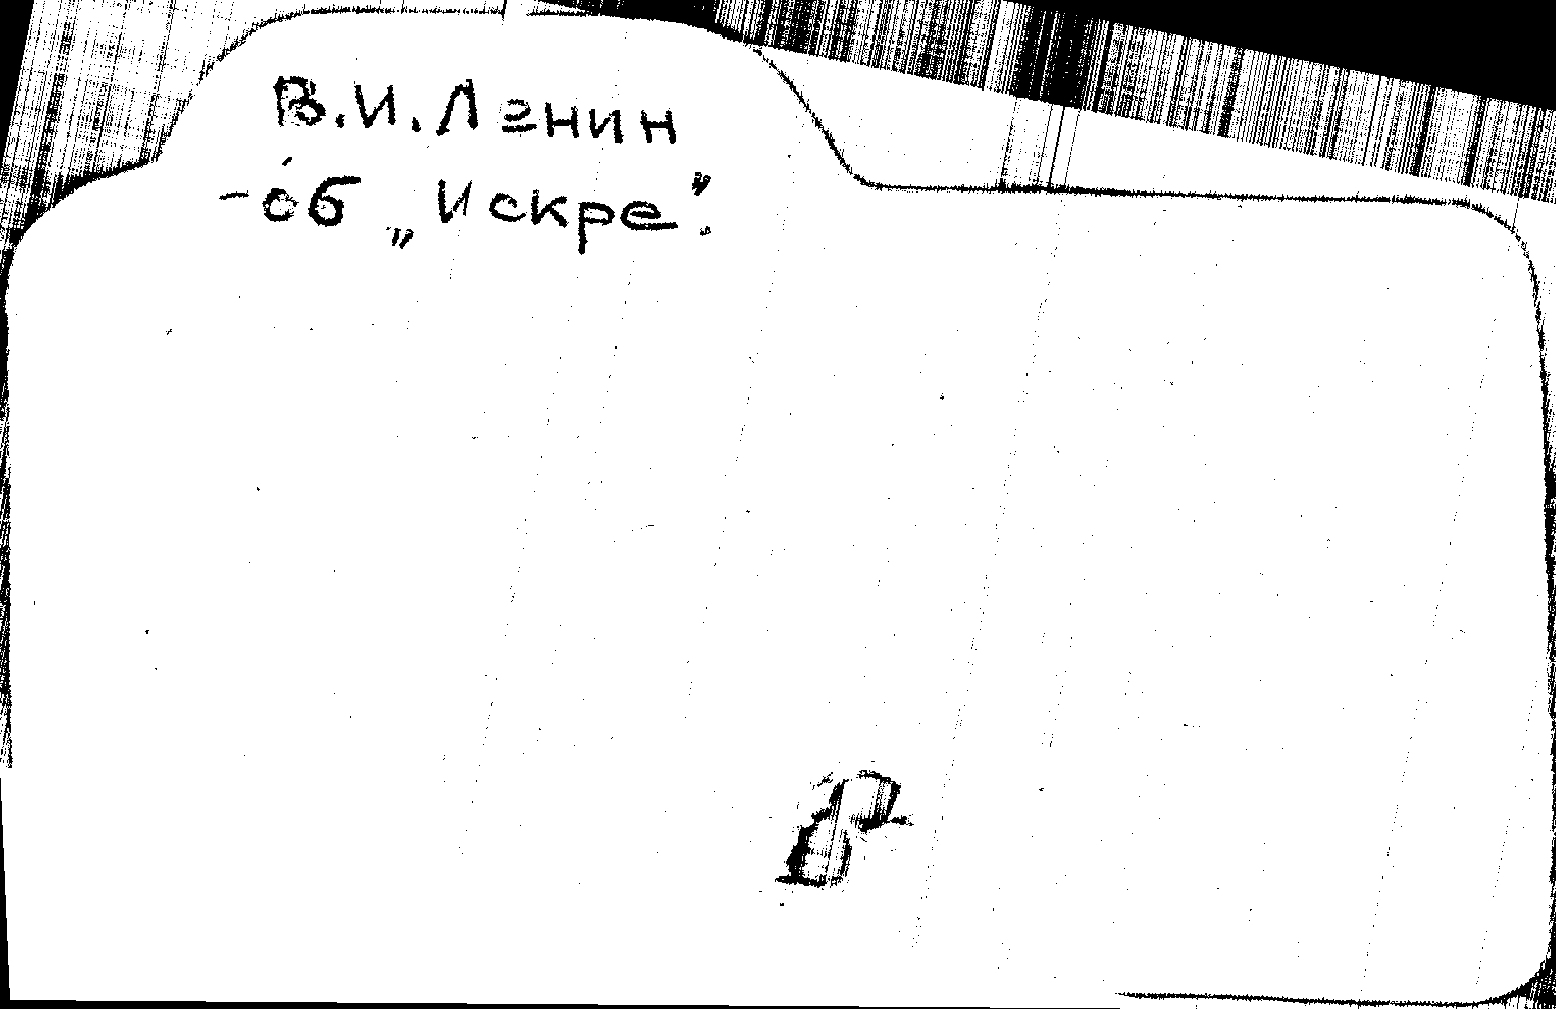 В.И.Ленин
-об „Искре".